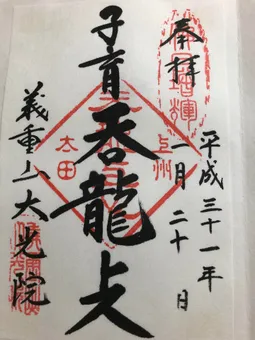 奉拝
平成三十一年
一月二十日
上州
太田
子育呑龍上人
義重山大光院